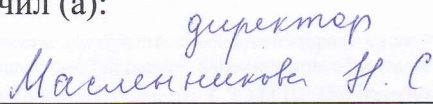 чил (а):
директор
Масленникова Н. С